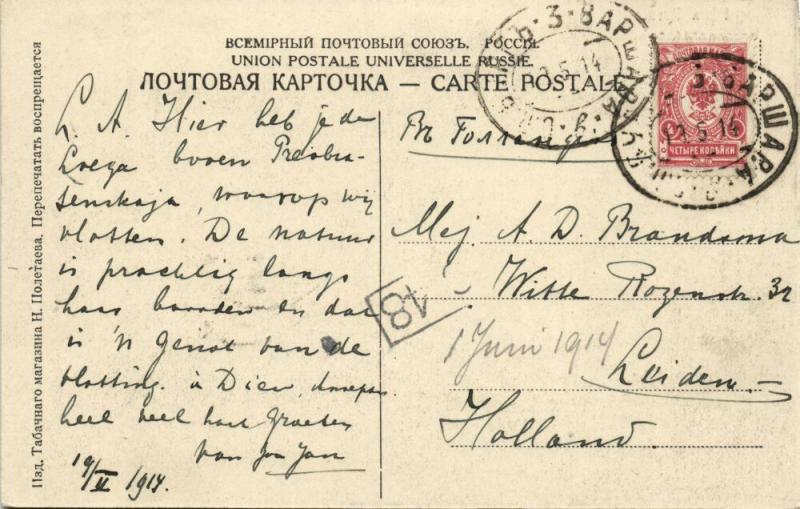 ВСЕМІРНЫЙ ПОЧТОВЫЙ СОЮЗЪ. РОССІЯ.
UNION POSTALE UNIVERSELLE RUSSIE.
ПОЧТОВАЯ КАРТОЧКА — CARTE POSTALE
Изд. Табачнаго магазина Н. Полетаева. Перепечатать воспрещается
L. A. Hier heb je de
Loega boven Preobra-
zenskaja, waarop wij
vlotten. De natuur
is prachtig langs
haar boorden en dat
is 'n genot van de
vlotting. à Dieu,
heel veel hart. Groeten
van Jan
19/V 1914.
Въ Голландію
Mej. A. D. Brandsma
Witte Rozenstr. 32
1 Juni 1914
Leiden.
Holland.
18
3·ВАРШАВА
5.14
ЧЕТЫРЕ КОПѢЙКИ
3·ВАРШАВА
5.14